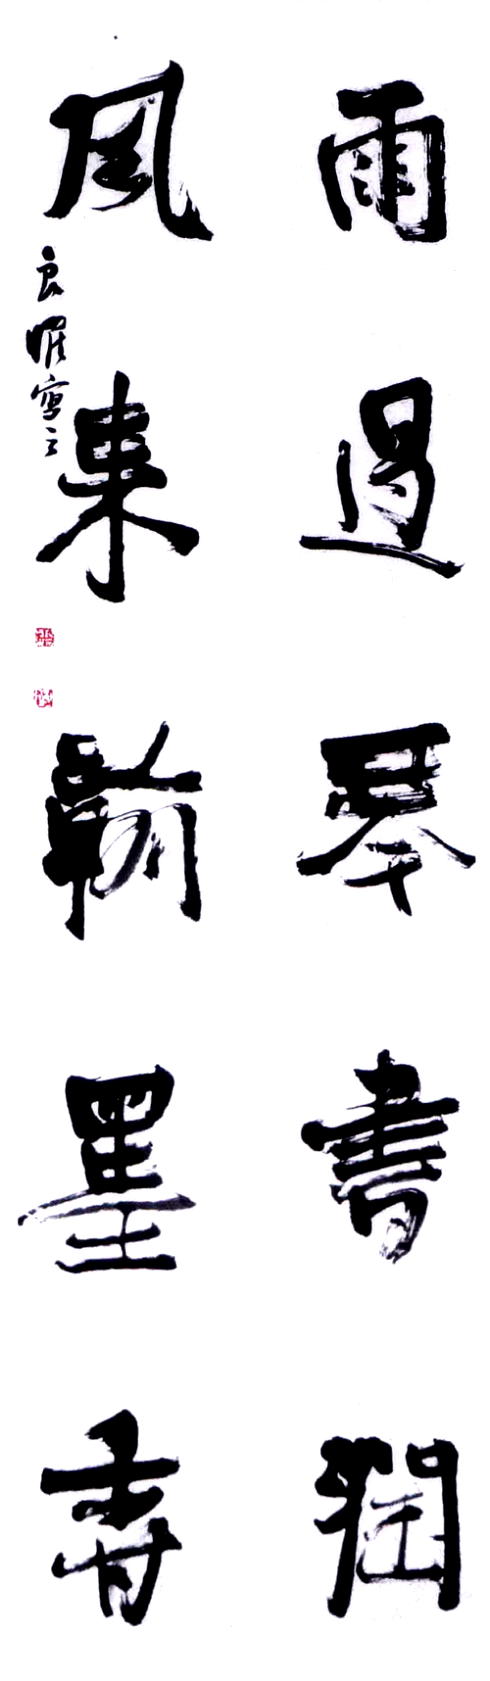 雨過琴書潤
風來翰墨香
良
寫之